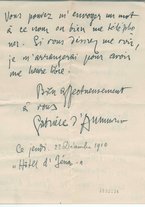 Vous pouvez m'envoyer un mot
à ce nom ou bien me télépho-
ner. Si vous désirez me voir,
je m'arrangerai pour avoir
une heure libre.
Bien affectueusement
à vous
Gabriele d'Annunzio
Ce jeudi. 22 Décembre 1910
"Hôtel d'Iéna"